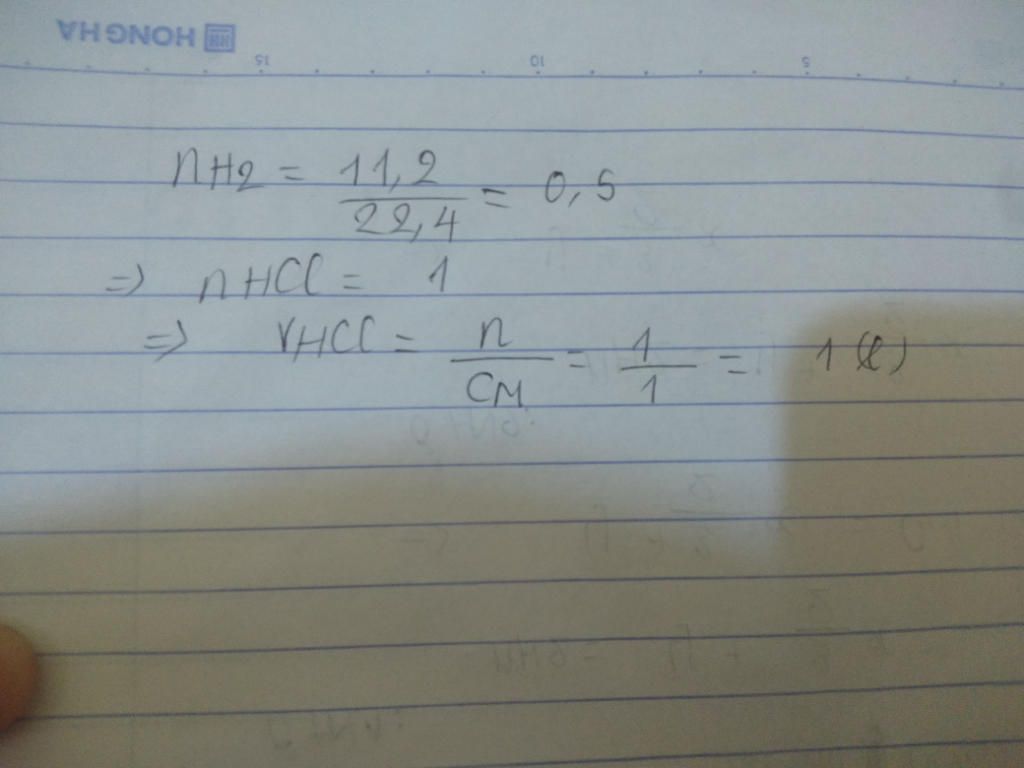 HONG HA
15 10 5
nH2 = 11,2 / 22,4 = 0,5
=> nHCl = 1
=> VHCl = n / CM = 1 / 1 = 1 (l)